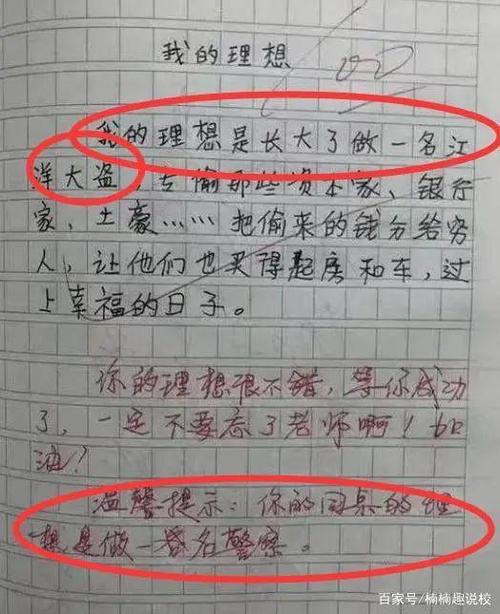 我的理想
我的理想是长大了做一名江
洋大盗，专偷那些资本家、银行
家、土豪……把偷来的钱分给穷
人，让他们也买得起房和车，过
上幸福的日子。
你的理想很不错，等你成功
了，一定不要忘了老师啊！加
油！
温馨提示：你的同桌的理
想是做一名警察。
百家号/楠楠趣说校